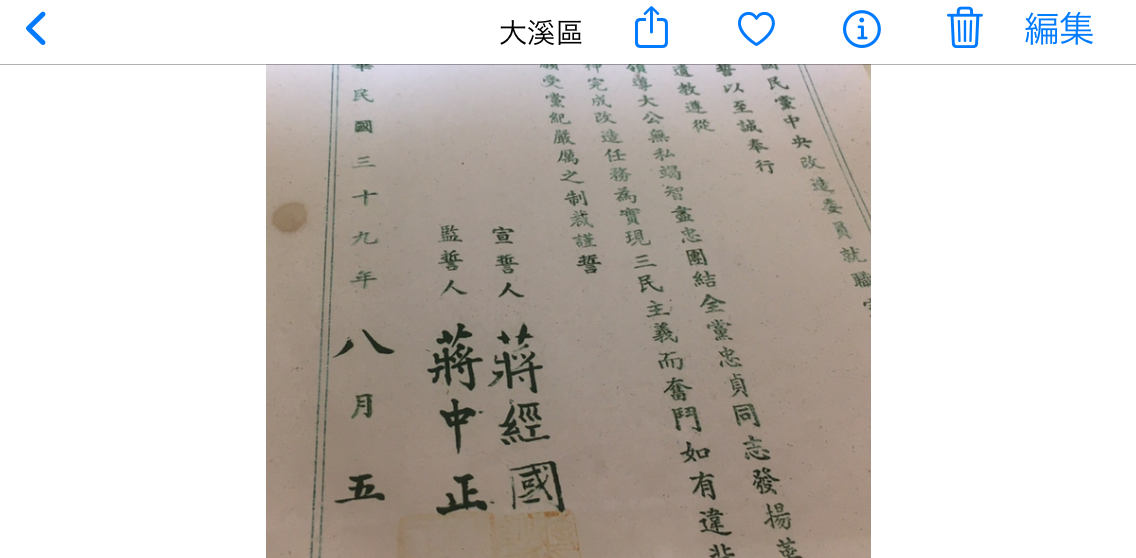 大溪區
編集
國民黨中央改造委員就職宣
誓以至誠奉行
遺教遵從
領導大公無私竭智盡忠團結全黨忠貞同志發揚革
完成改造任務為實現三民主義而奮鬥如有違
受黨紀嚴厲之制裁謹誓
宣誓人 蔣經國
監誓人 蔣中正
華民國三十九年八月五